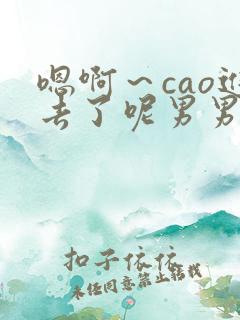 嗯啊～cao进
去了呢男男
扣子依依
未经同意禁止转载